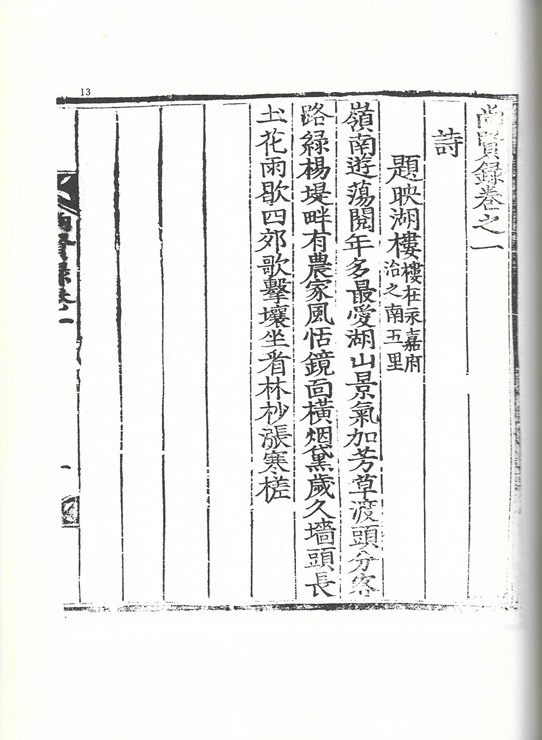 13
尙賢錄卷之一
詩
題映湖樓樓在永嘉府
治之南五里
嶺南遊蕩閱年多最愛湖山景氣加芳草渡頭分客
路綠楊堤畔有農家風恬鏡面橫烟黛歲久墻頭長
土花雨歇四郊歌擊壤坐看林杪漲寒槎
尙賢錄卷一
一